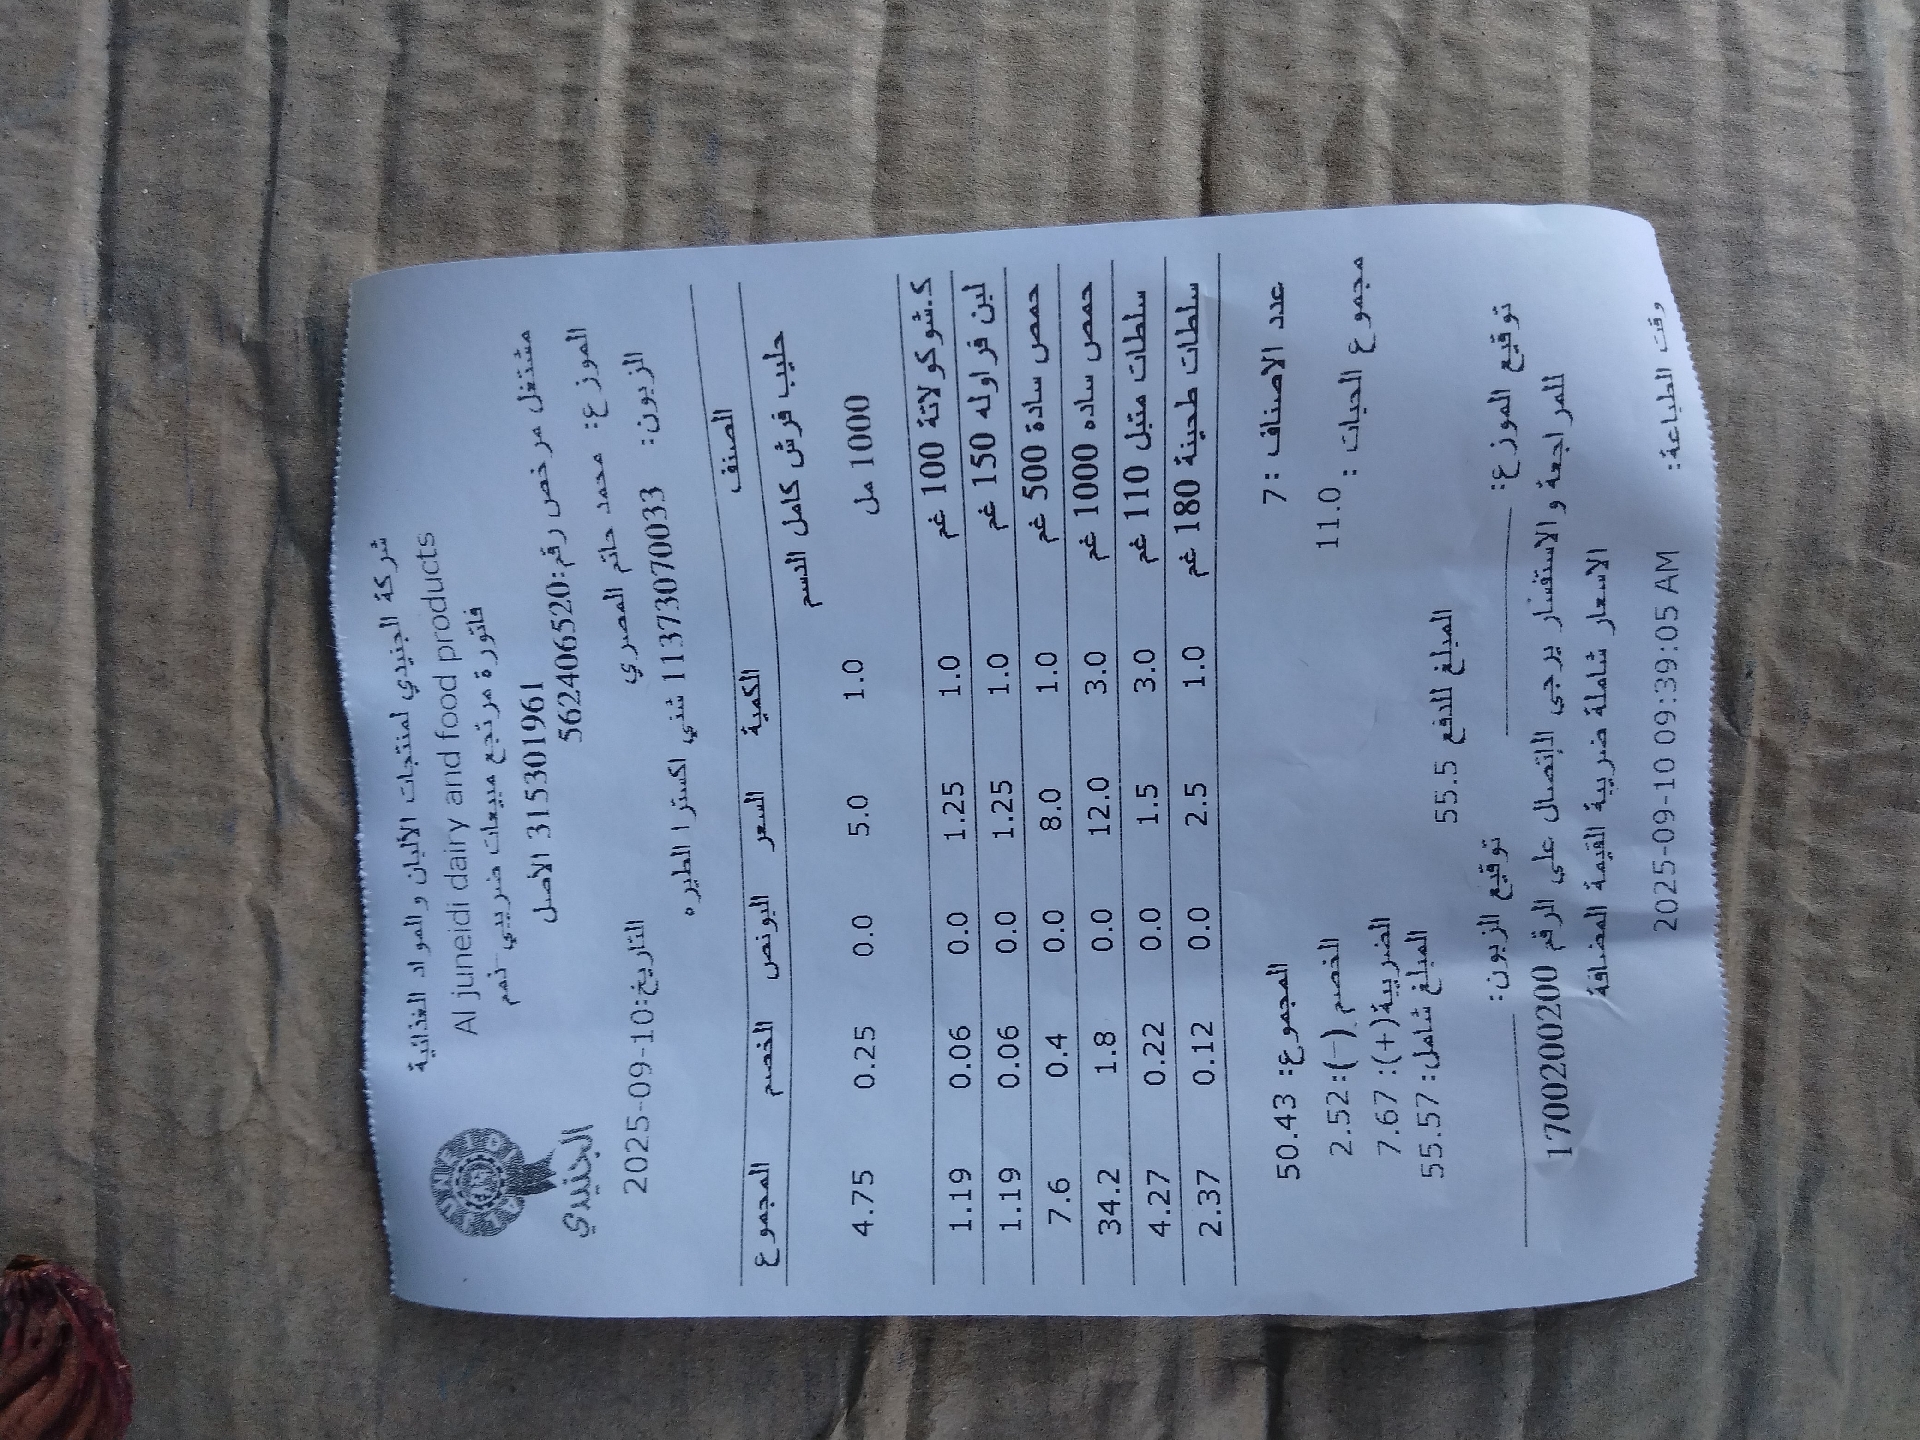 شركة الجنيدي لمنتجات الألبان والمواد الغذائية
Al juneidi dairy and food products
فاتورة مرتجع مبيعات ضريبي نمم
315301961 الأصل
مشتغل مرخص رقم:562406520
الجنيدي
الموزع: محمد حاتم المصري
التاريخ:2025-09-10
الزبون: 1137307033 شني اكسترا الطيره
الصنف الكمية السعر البونص الخصم المجموع
حليب فرش كامل الدسم
1000 مل 1.0 5.0 0.0 0.25 4.75
ك.شوكولاتة 100 غم 1.0 1.25 0.0 0.06 1.19
لبن فراوله 150 غم 1.0 1.25 0.0 0.06 1.19
حمص سادة 500 غم 1.0 8.0 0.0 0.4 7.6
حمص ساده 1000 غم 3.0 12.0 0.0 1.8 34.2
سلطات متبل 110 غم 3.0 1.5 0.0 0.22 4.27
سلطات طحينة 180 غم 1.0 2.5 0.0 0.12 2.37
عدد الاصناف : 7 المجموع: 50.43
مجموع الحبات : 11.0 الخصم (-): 2.52
الضريبة(+): 7.67
المبلغ شامل: 55.57
المبلغ للدفع 55.5
توقيع الموزع: توقيع الزبون:
للمراجعة والاستفسار يرجى الإتصال على الرقم 1700200200
الاسعار شاملة ضريبة القيمة المضافة
وقت الطباعة: 2025-09-10 09:39:05 AM